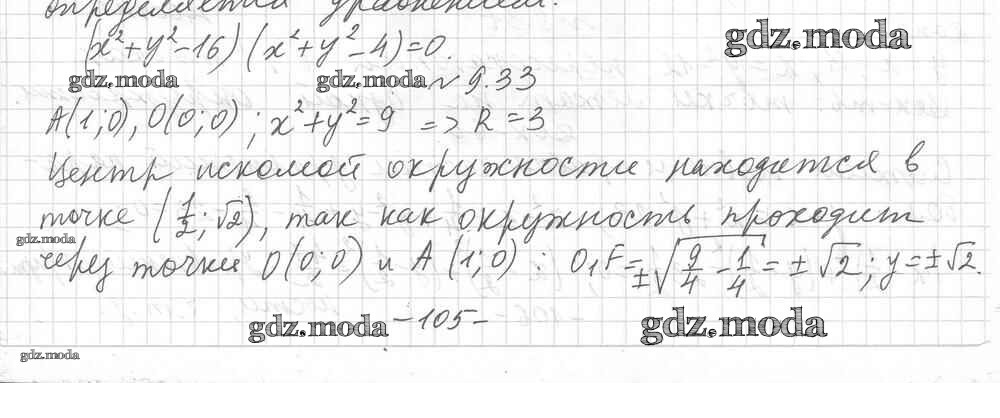 определяется уравнением:
(x²+y²-16)(x²+y²-4)=0.
gdz.moda
gdz.moda gdz.moda № 9.33
A(1;0), O(0;0); x²+y²=9 => R=3
Центр искомой окружности находится в
точке (1/2;√2), так как окружность проходит
gdz.moda
через точки O(0;0) и A(1;0): O₁F=±√(9/4-1/4)=±√2; y=±√2.
gdz.moda -105- gdz.moda
gdz.moda